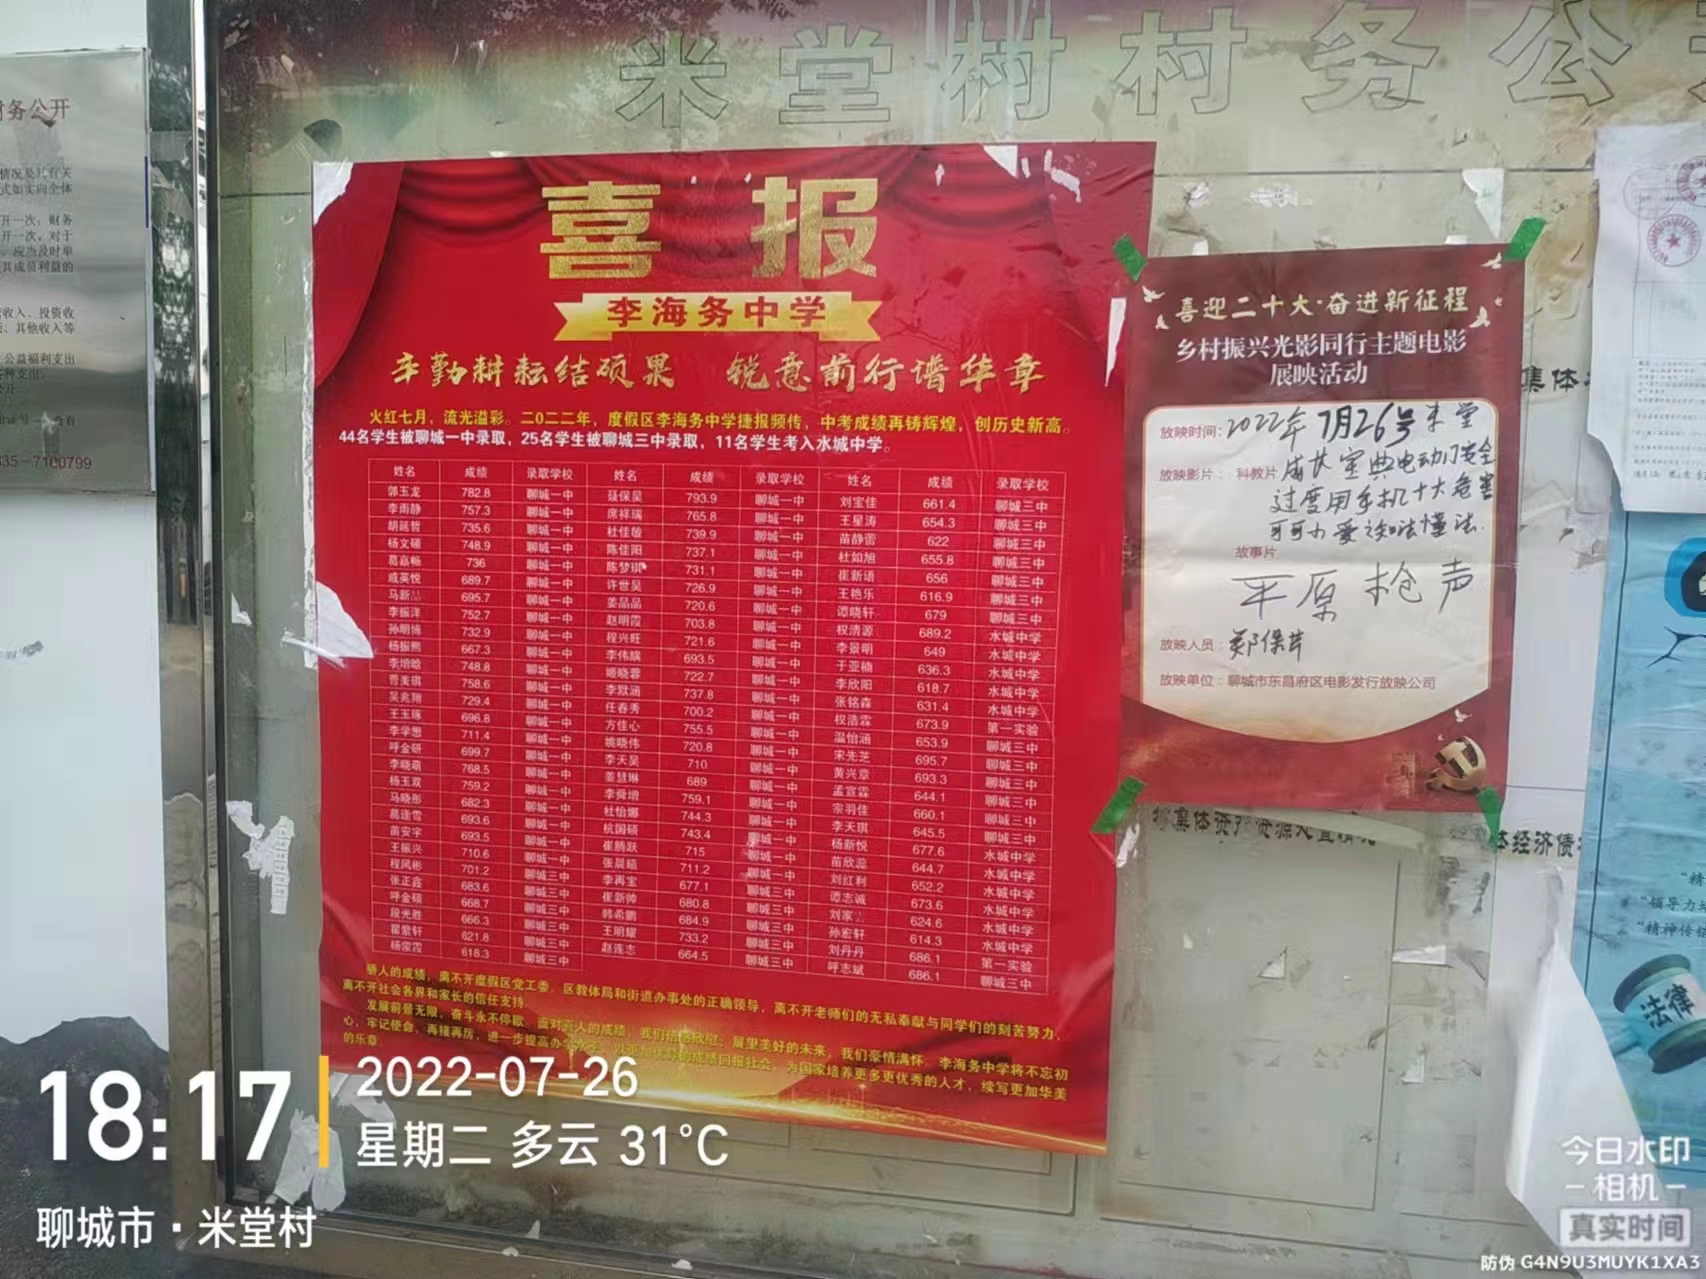 米堂村村务公
喜报
李海务中学
辛勤耕耘结硕果 锐意前行谱华章
火红七月，流光溢彩。二〇二二年，度假区李海务中学捷报频传，中考成绩再铸辉煌，创历史新高。
44名学生被聊城一中录取，25名学生被聊城三中录取，11名学生考入水城中学。
姓名 成绩 录取学校 姓名 成绩 录取学校 姓名 成绩 录取学校
郭玉龙 782.8 聊城一中 聂保昊 793.9 聊城一中 刘宝佳 661.4 聊城三中
李雨静 757.3 聊城一中 席祥瑞 765.8 聊城一中 王星涛 654.3 聊城三中
胡延哲 735.6 聊城一中 杜佳敏 739.9 聊城一中 苗静蕾 622 聊城三中
杨文硕 748.9 聊城一中 陈佳阳 737.1 聊城一中 杜如旭 655.8 聊城三中
葛嘉畅 736 聊城一中 陈梦琪 731.1 聊城一中 崔新语 656 聊城三中
戚英悦 689.7 聊城一中 许世昊 726.9 聊城一中 王艳乐 616.9 聊城三中
马新 695.7 聊城一中 姜晶晶 720.6 聊城一中 谭晓轩 679 聊城三中
李振洋 752.7 聊城一中 赵明霞 703.8 聊城一中 权清源 689.2 水城中学
孙明博 732.9 聊城一中 程兴旺 721.6 聊城一中 李景明 649 水城中学
杨振熙 667.3 聊城一中 李伟 693.5 聊城一中 于亚楠 636.3 水城中学
李增晗 748.8 聊城一中 姬晓蓉 722.7 聊城一中 李欣阳 618.7 水城中学
曹美琪 758.6 聊城一中 李默涵 737.8 聊城一中 张铭森 631.4 水城中学
吴兆翔 729.4 聊城一中 任春秀 700.2 聊城一中 权浩霖 673.9 第一实验
王玉琢 696.8 聊城一中 方佳心 755.5 聊城一中 温怡涵 653.9 聊城三中
李学想 711.4 聊城一中 姚晓伟 720.8 聊城一中 宋先芝 695.7 聊城三中
呼金研 699.7 聊城一中 李天昊 710 聊城一中 黄兴章 693.3 聊城三中
李晓萌 768.5 聊城一中 姜慧琳 689 聊城一中 孟宣霖 644.1 聊城三中
杨玉双 759.2 聊城一中 李舜增 759.1 聊城一中 宗羽佳 660.1 聊城三中
马晓彤 682.3 聊城一中 杜怡娜 744.3 聊城一中 李天琪 645.5 聊城三中
葛逢雪 693.6 聊城一中 杭国硕 743.4 聊城一中 杨新悦 677.6 水城中学
苗安宇 693.5 聊城一中 崔腾跃 715 聊城一中 苗欣蕊 644.7 水城中学
王振兴 710.6 聊城一中 张晨曦 711.2 聊城一中 刘红利 652.2 水城中学
程凤彬 701.2 聊城三中 李再宝 677.1 聊城三中 谭志诚 673.6 水城中学
张正鑫 683.6 聊城三中 崔新帅 680.8 聊城三中 刘家 624.6 水城中学
呼金硕 668.7 聊城三中 韩希鹏 684.9 聊城三中 孙宏轩 614.3 水城中学
段光胜 666.3 聊城三中 王明耀 733.2 聊城三中 刘丹丹 686.1 第一实验
翟紫轩 621.8 聊城三中 赵连志 664.5 聊城三中 呼志斌 686.1 聊城三中
杨蒙霞 618.3 聊城三中
骄人的成绩，离不开度假区党工委、区教体局和街道办事处的正确领导，离不开老师们的无私奉献与同学们的刻苦努力，
离不开社会各界和家长的信任支持。
发展前景无限，奋斗永不停歇。面对骄人的成绩，我们倍感欣慰；展望美好的未来，我们豪情满怀。李海务中学将不忘初
心，牢记使命，再接再厉，进一步提高办学水平，以更加优异的成绩回报社会，为国家培养更多更优秀的人才，续写更加华美
的乐章。
喜迎二十大·奋进新征程
乡村振兴光影同行主题电影
展映活动
放映时间：2022年7月26号米堂
放映影片：科教片 成长宝典电动门安全
过度用手机十大危害
可可小爱知法懂法
故事片
平原枪声
放映人员：郑保芹
放映单位：聊城市东昌府区电影发行放映公司
村务公开
情况及其有关
式如实向全体
开一次，财务
开一次，对于
，应当及时单
其成员利益的
收入、投资收
、其他收入等
公益福利支出
种支出.
35-7100799
集体
体经济债
"精
"领导力
"精神传
法律
18:17
2022-07-26
星期二 多云 31°C
聊城市·米堂村
今日水印
相机
真实时间
防伪 G4N9U3MUYK1XA3